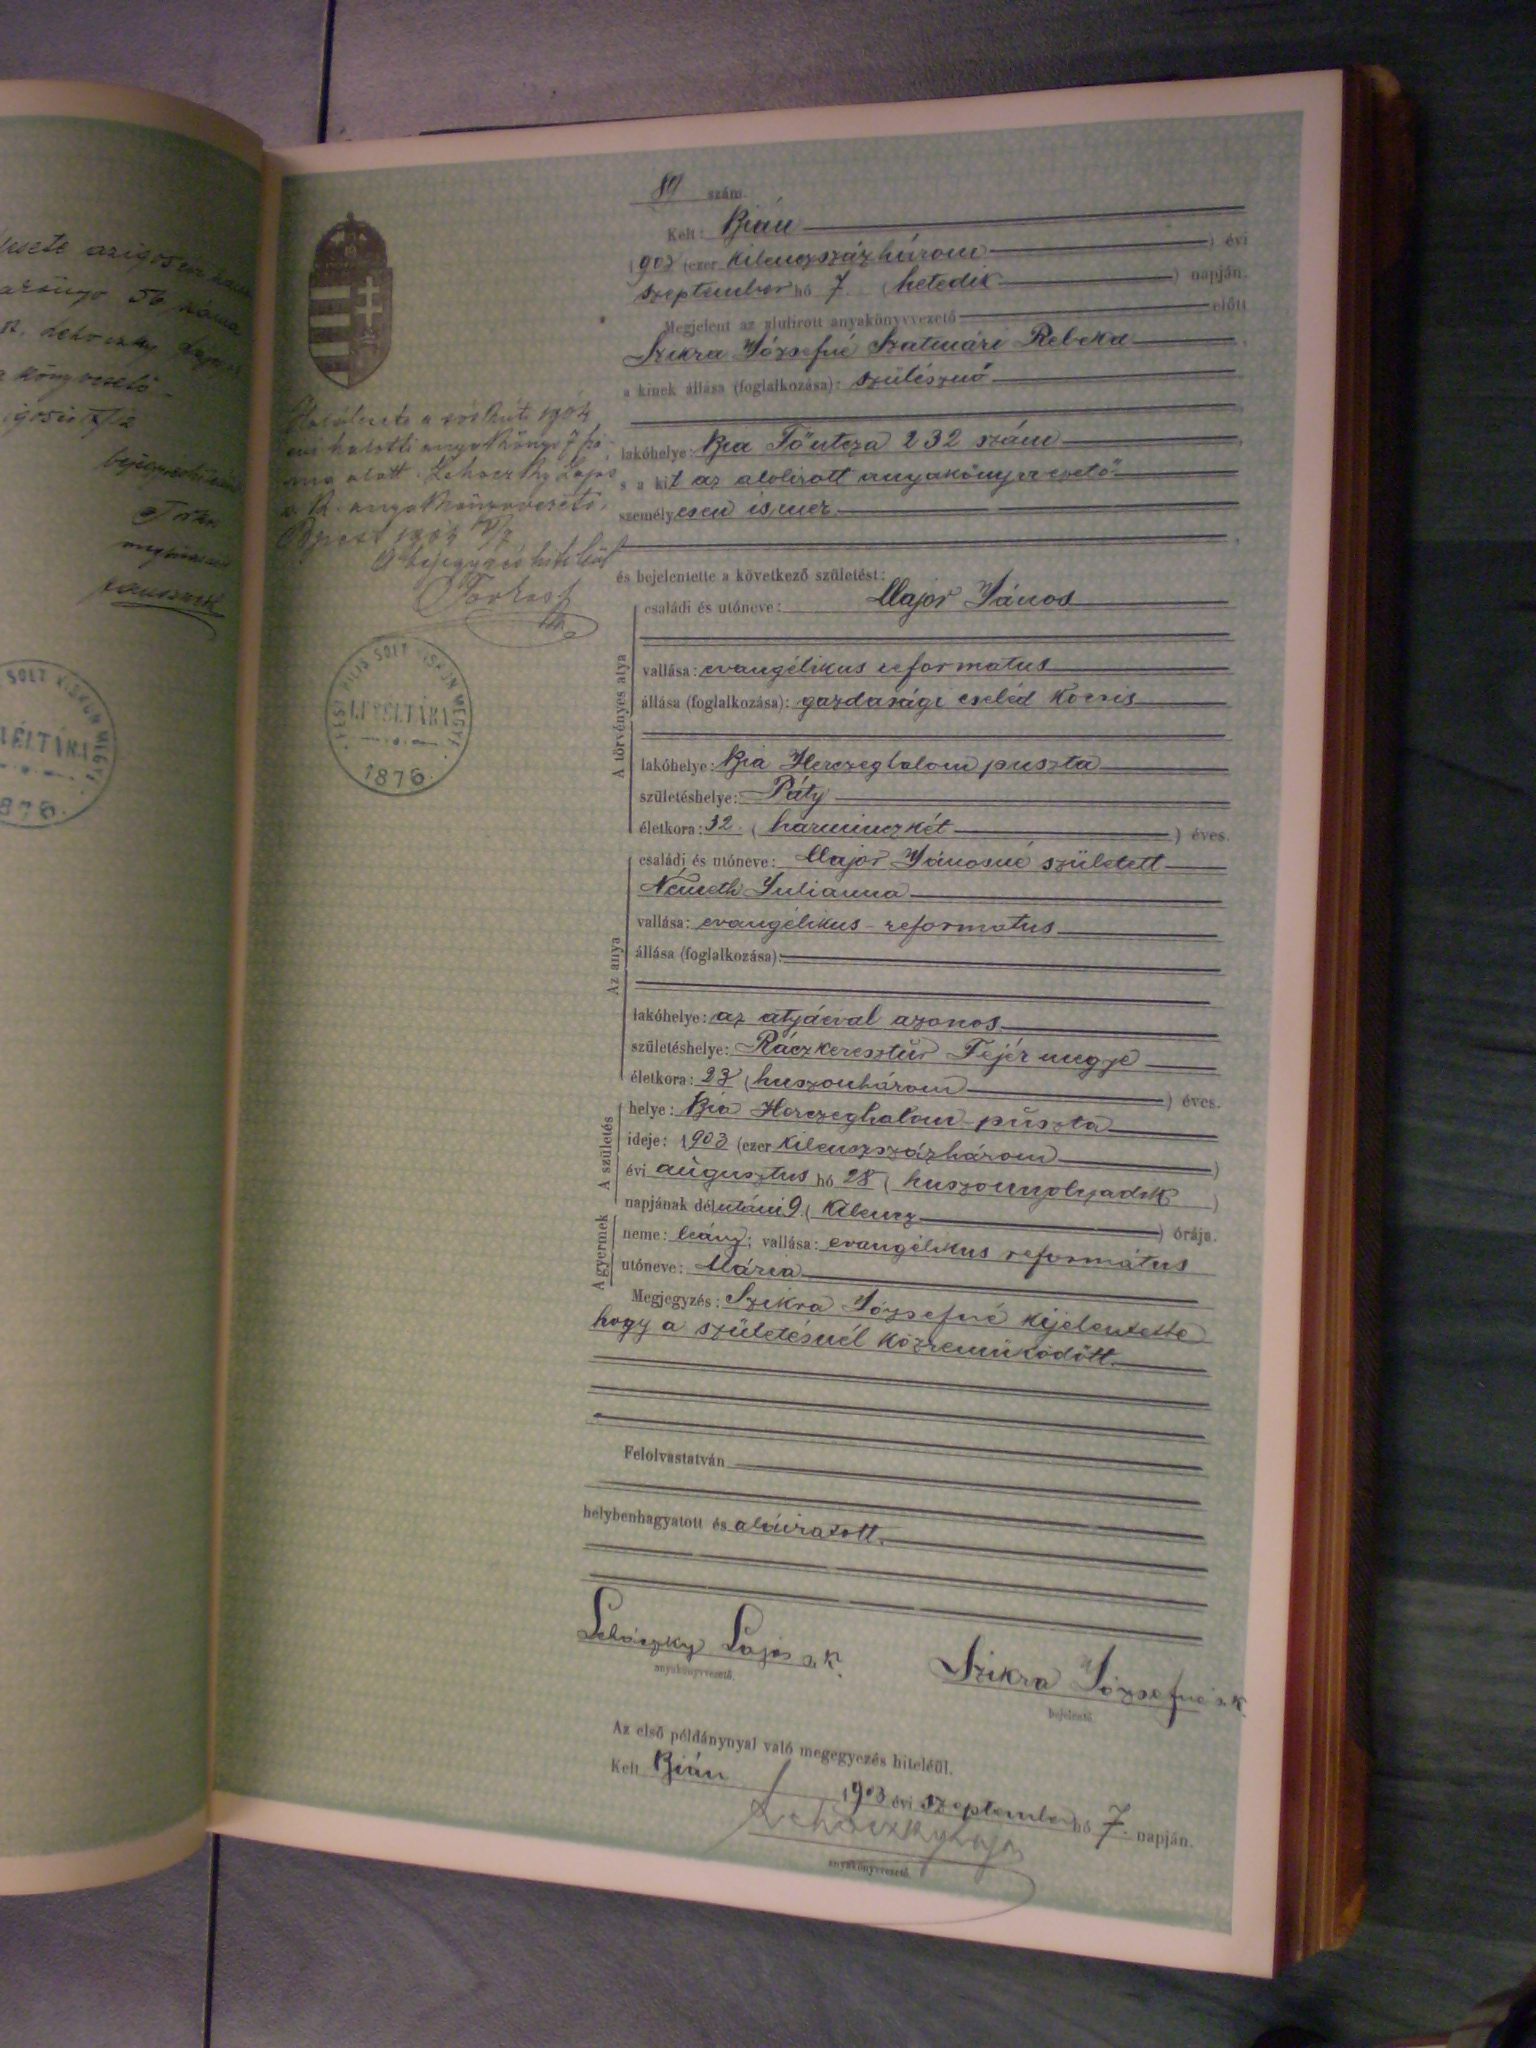 89 szám.
Kelt: Bián
1903 (ezer kilenczszázhárom) évi
szeptember hó 7. (hetedik) napján.
Megjelent az alulirott anyakönyvvezető előtt
Szikra Józsefné Szatmári Rebeka,
a kinek állása (foglalkozása): szülésznő
lakóhelye: Bia Főutcza 232 szám,
s a kit az alólirott anyakönyvvezető
személyesen ismer
és bejelentette a következő születést:
A törvényes atya
családi és utóneve: Major János
vallása: evangélikus reformatus
állása (foglalkozása): gazdasági cseléd kocsis
lakóhelye: Bia Herczeghalom puszta
születéshelye: Páty
életkora: 32. (harminczkét) éves.
Az anya
családi és utóneve: Major Jánosné született
Németh Julianna
vallása: evangélikus-reformatus
állása (foglalkozása):
lakóhelye: az atyáéval azonos
születéshelye: Ráczkeresztúr Fejér megye
életkora: 23 (huszonhárom) éves.
A születés
helye: Bia Herczeghalom-puszta
ideje: 1903 (ezer kilenczszázhárom)
évi augusztus hó 28 (huszonnyolczadik)
napjának délutáni 9. (kilencz) órája.
A gyermek
neme: leány; vallása: evangélikus református
utóneve: Mária
Megjegyzés: Szikra Józsefné kijelentette
hogy a születésnél közreműködött.
Felolvastatván
helybenhagyatott és aláiratott.
Lehóczky Lajos s. k.
anyakönyvvezető.
Szikra Józsefné s. k.
bejelentő.
Az első példánynyal való megegyezés hiteléül.
Kelt Bián 1903 évi szeptember hó 7. napján.
Lehóczky Lajos
anyakönyvvezető.
1904
évi halotti anyakönyv 7 szá-
ma alatt. Lehoczky Lajos
s. k. anyakönyvvezető.
Bpest 1904
A bejegyzés hiteléül
PEST PILIS SOLT KISKUN MEGYE
LEVÉLTÁRA
1876.
56 száma
SOLT KISKUN MEGYE